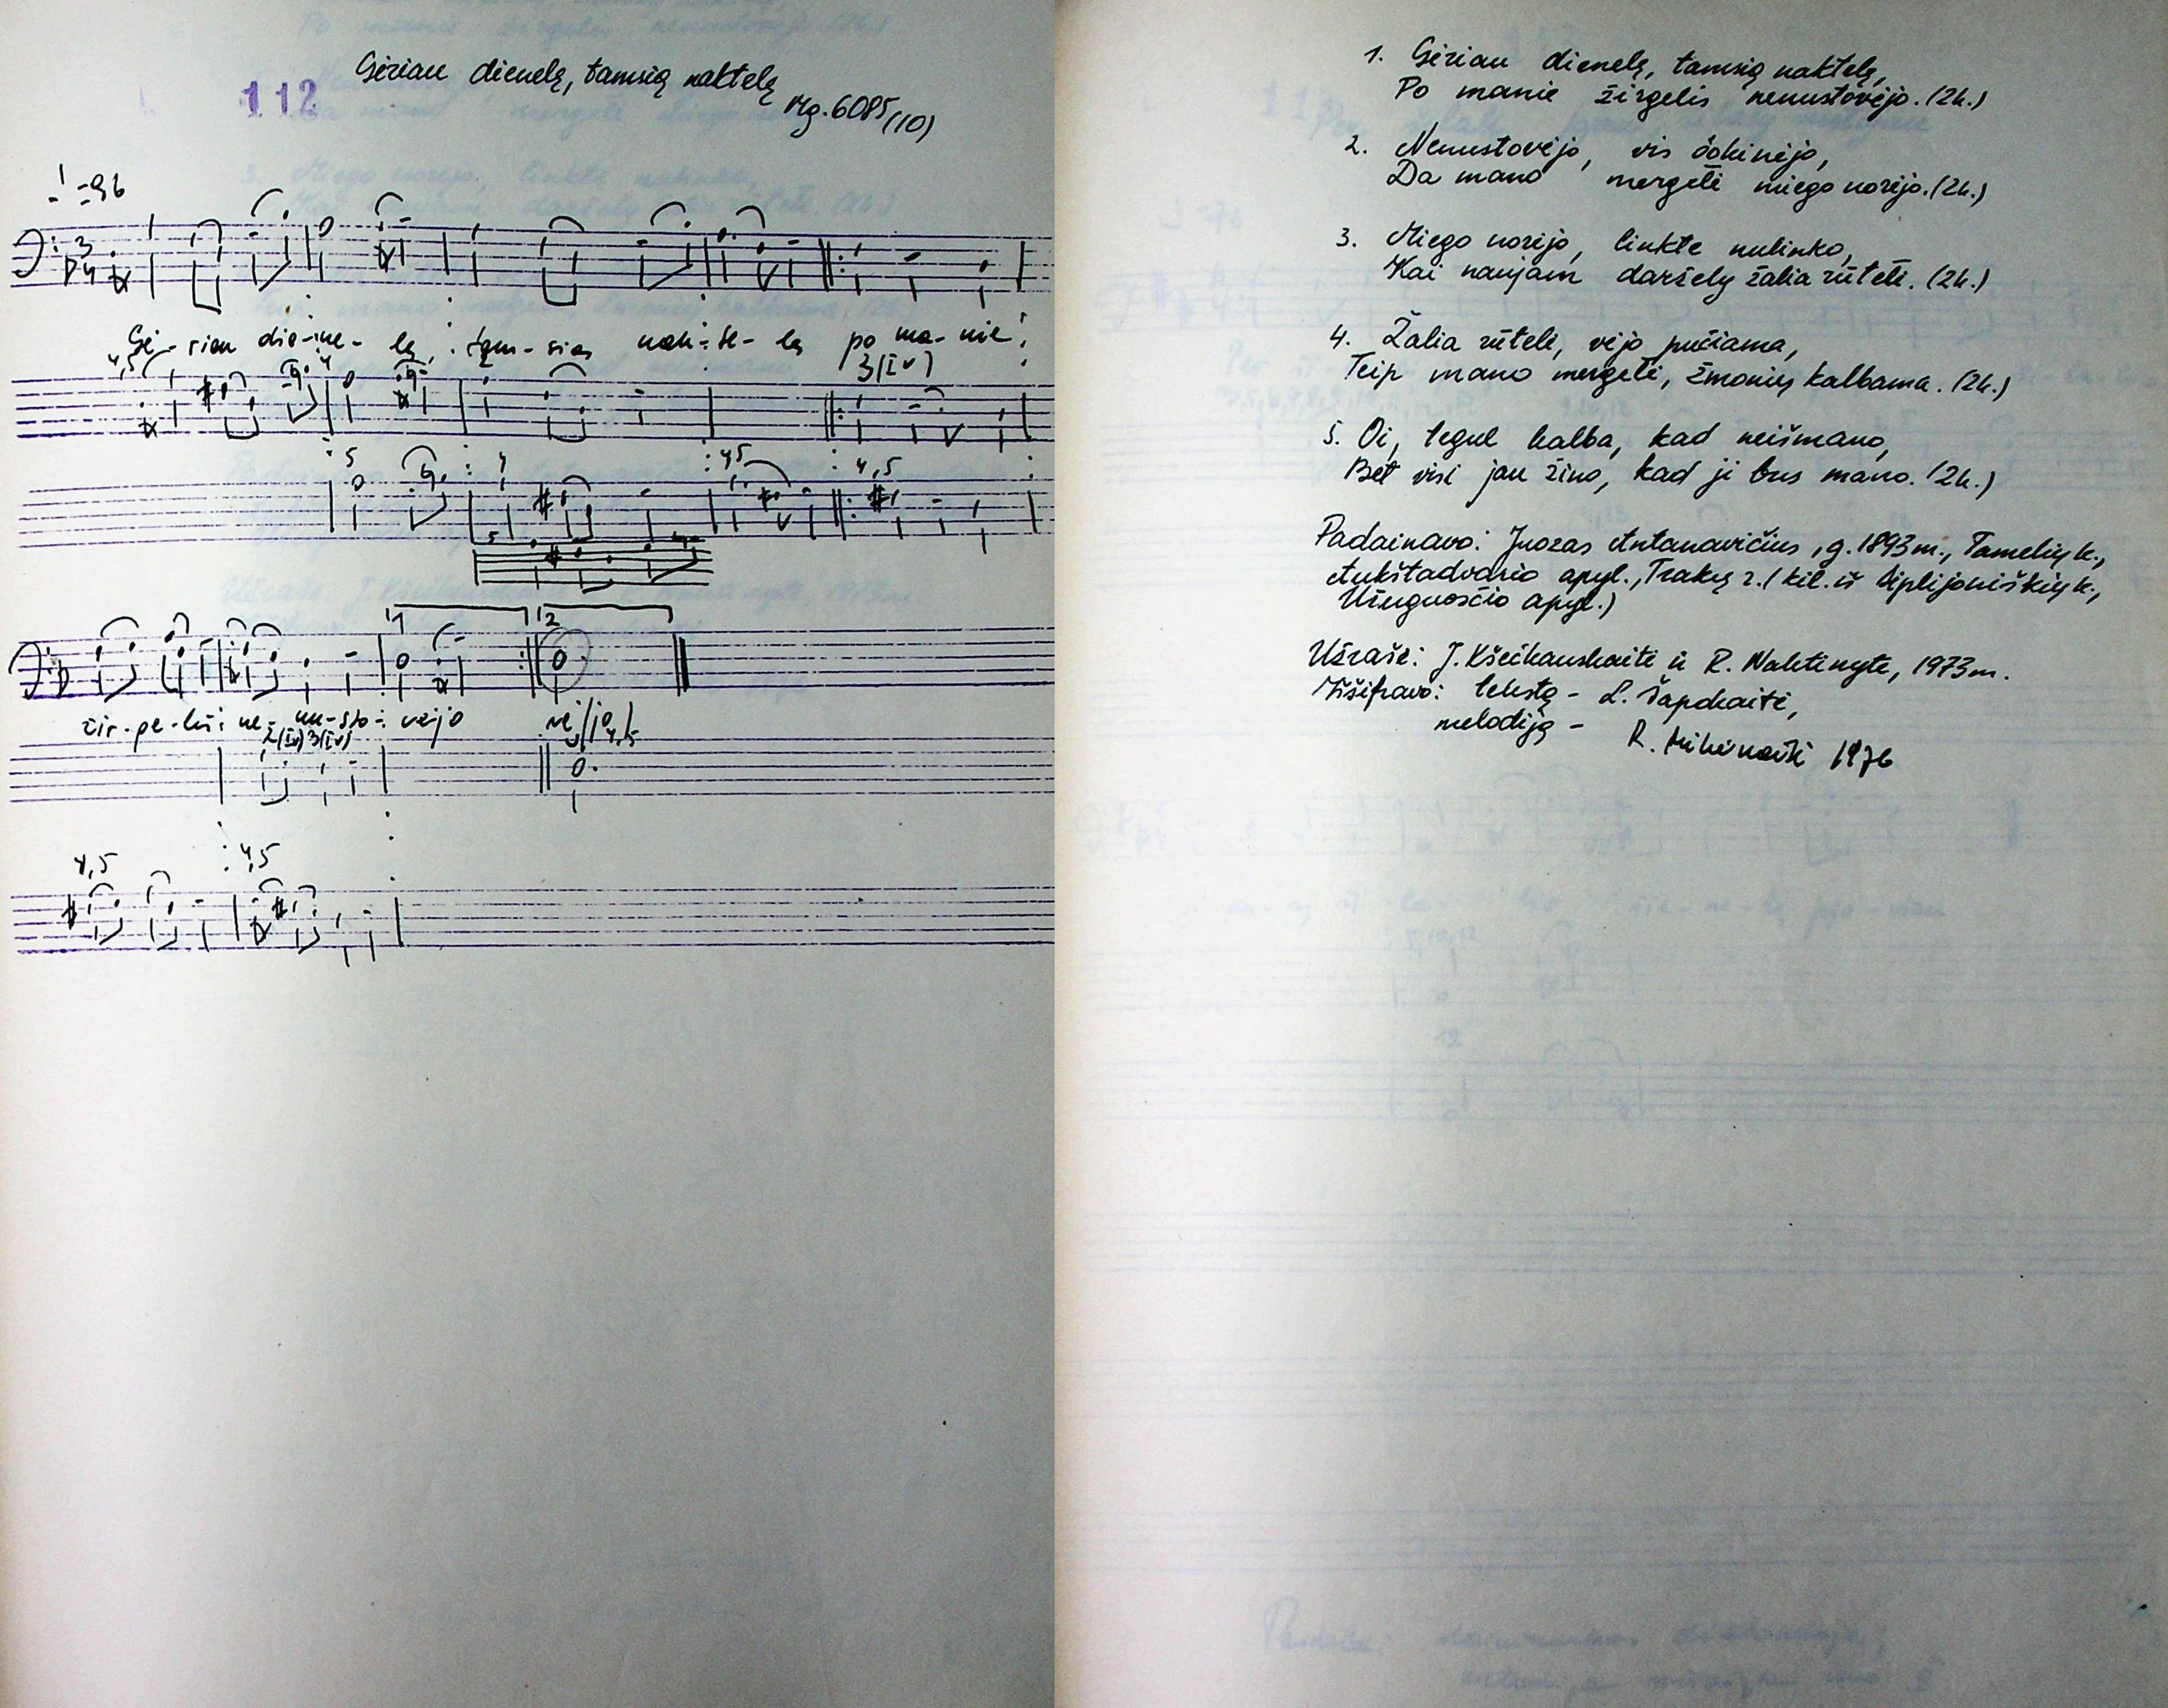 Gėriau dienelę, tamsią naktelę
112
Mg. 6085 (10)
=96
3
4
Gė-riau die-ne-lę, tam-sią nak-te-lę po ma-nie
4,5
4
2
3(IV)
5
4
4,5
4,5
5
4
1
2
žir-ge-lis ne-nu-sto-vėjo vėjo
2(IV) 3(IV)
4,5
4,5
4,5
1. Gėriau dienelę, tamsią naktelę,
Po manie žirgelis nenustovėjo. (2k.)
2. Nenustovėjo, vis šokinėjo,
Da mano mergelė miego norėjo. (2k.)
3. Miego norėjo, linkte nulinko,
Kai naujam daržely žalia rūtelė. (2k.)
4. Žalia rūtelė, vėjo pučiama,
Teip mano mergelė, žmonių kalbama. (2k.)
5. Oi, tegul kalba, kad neišmano,
Bet visi jau žino, kad ji bus mano. (2k.)
Padainavo: Juozas Antanavičius, g. 1893 m., Tamelių k.,
Aukštadvario apyl., Trakų r. (kil. iš Liplijoniškių k.,
Užuguosčio apyl.)
Užrašė: J. Kšečkauskaitė ir R. Naktinytė, 1973 m.
Iššifravo: tekstą - L. Šapokaitė,
melodiją - R. 1976